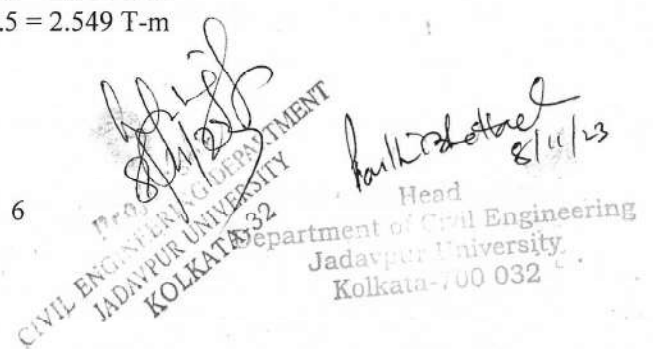 .5 = 2.549 T-m
8/11/23
CIVIL ENGINEERING DEPARTMENT
JADAVPUR UNIVERSITY
KOLKATA-32
8/11/23
Head
Department of Civil Engineering
Jadavpur University
Kolkata-700 032
6